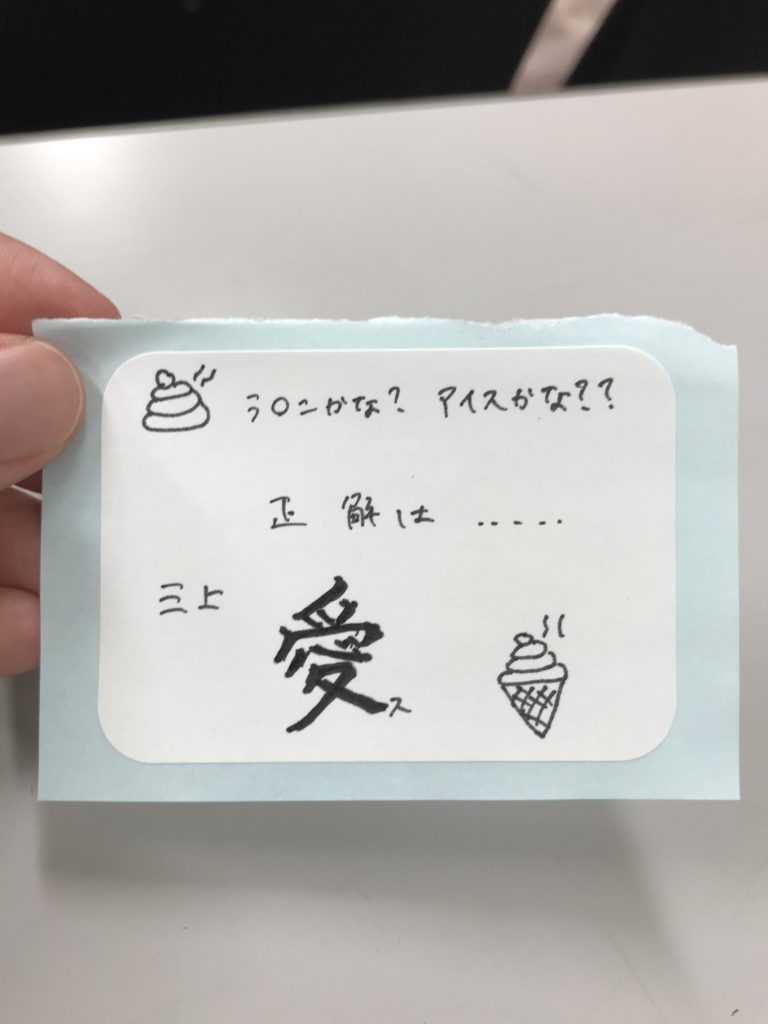 う○こかな? アイスかな??
正解は .....
三上
愛ス